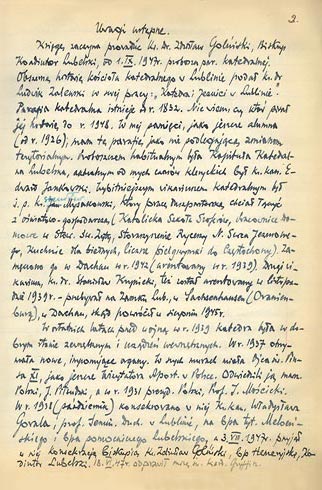 2.
Uwagi wstępne.
Księgę zaczyna prowadzić Ks. dr. Zdzisław Goliński, Biskup
Koadiutor Lubelski, od 1.IX.1947r. proboszcz par. katedralnej.
Obszerną historię kościoła katedralnego w Lublinie podał ks. dr
Ludwik Zalewski w swej pracy: Katedra i jezuici w Lublinie.
Parafia katedralna istnieje od r. 1832. Nie wiem czy ktoś pisał
jej historię do r. 1948. W mej pamięci, jako jeszcze alumna
(od r. 1926), mam tę parafię jako nie podlegającą zmianom
terytorialnym. Proboszczem habitualnym była Kapituła Katedral-
na Lubelska, aktualnym od mych czasów kleryckich był ks. kan. E-
dward Jankowski, najwybitniejszym wikariuszem katedralnym był
ś. p. ks. Jan, który pracę duszpasterską, chciał łączyć
z oświatowo-gospodarczą (Katolicka Szkoła, Pracownice do-
mowe w Stow. Św. Zyty, Stowarzyszenie Rycerzy N. Serca Jezusowe-
go, Kuchnie dla biednych, liczne pielgrzymki do Częstochowy). Za-
męczono go w Dachau w r. 1942 (aresztowany w r. 1939). Drugi wi-
kariusz, ks. dr. Stanisław Krynicki, też został aresztowany w listopa-
dzie 1939r. – przebywał na Zamku Lub., w Sachsenhausen (Oranien-
burg), w Dachau, skąd powrócił w sierpniu 1945r.
W ostatnich latach przed wojną w r. 1939 katedra była w do-
brym stanie zewnętrznym i urządzeń wewnętrznych. W r. 1937 otrzy-
mała nowe, imponujące organy. W swych murach miała Ojca św. Piu-
sa XI, jako jeszcze Wizytatora Apost. w Polsce. Odwiedzili ją marsz.
Polski, J. Piłsudski, a w r. 1931 prezyd. Polski, Prof. I. Mościcki.
W r. 1938 (październik) konsekrowano w niej ks. kan. Władysława
Gorala, prof. Semin. Duch. w Lublinie, na bpa tyt. Meloeń-
skiego i bpa pomocniczego Lubelskiego, a 3.VIII.1947r. przyjął
w niej konsekrację Biskupią ks. Zdzisław Goliński, bp, Koa-
diutor Lubelski. 18.VI.47r. odprawił mszę w. kard. Griffin.